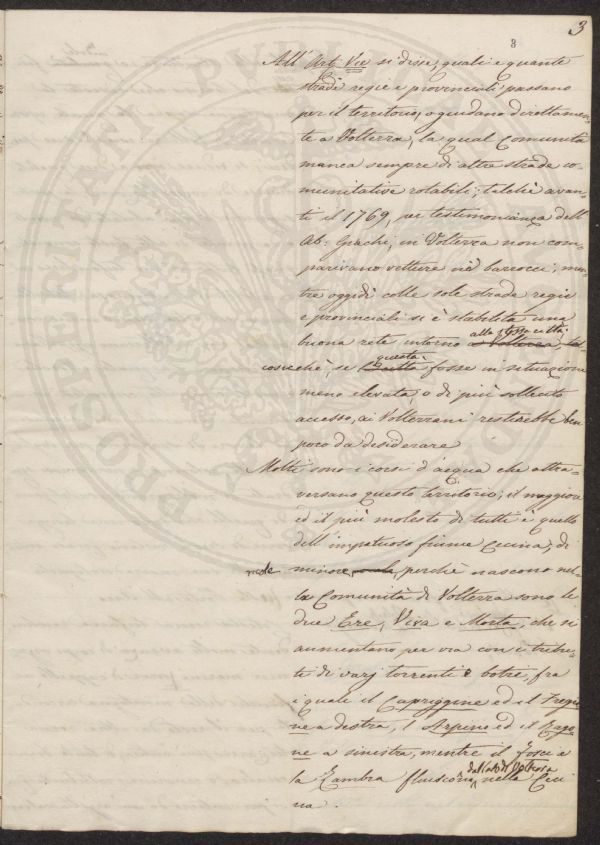 3
8
All' Art. Vie si disse, quali e quante
strade regie e provinciali passano
per il territorio, o guidano direttamen-
te a Volterra, la qual Comunità
manca sempre di altre strade co-
munitative rotabili; talchè avan-
ti il 1769, per testimonianza dell'
Ab: Giachi, in Volterra non com-
parivano vetture nè barrocci, men-
tre oggidì colle sole strade regie
e provinciali si è stabilita una
buona rete intorno alla stessa città,
cosicchè, se questa fosse in situazione
meno elevata, o di più sollecito
accesso, ai Volterrani resterebbe ben
poco da desiderare
Molti sono i corsi d'acqua che attra-
versano questo territorio; il maggiore
ed il più molesto di tutti è quello
dell'impetuoso fiume Cecina; di
minore mole, perchè nascono nel-
la Comunità di Volterra sono le
due Ere, Viva e Morta, che si
aumentano per via con i tribu-
ti di varj torrenti e botri, fra
i quali il Capriggine ed il Fregi-
ne a destra, l'Arpino ed il Rago-
ne a sinistra, mentre il Foscie
la Zambra fluiscono dal lato di Volterra nella Ceci-
na.
PROSPERITATI PVBLICAE